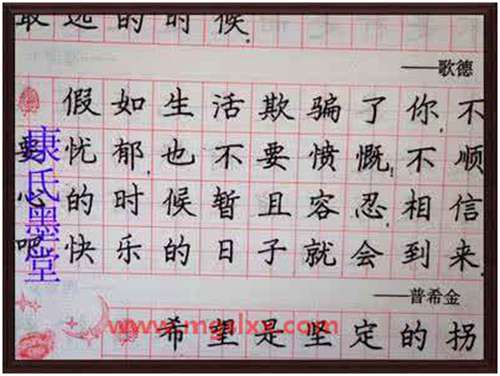 远的时候.
——歌德
假如生活欺骗了你,不
要忧郁,也不要愤慨,不顺
心的时候暂且容忍,相信
吧,快乐的日子就会到来.
——普希金
希望是坚定的拐
康氏墨堂